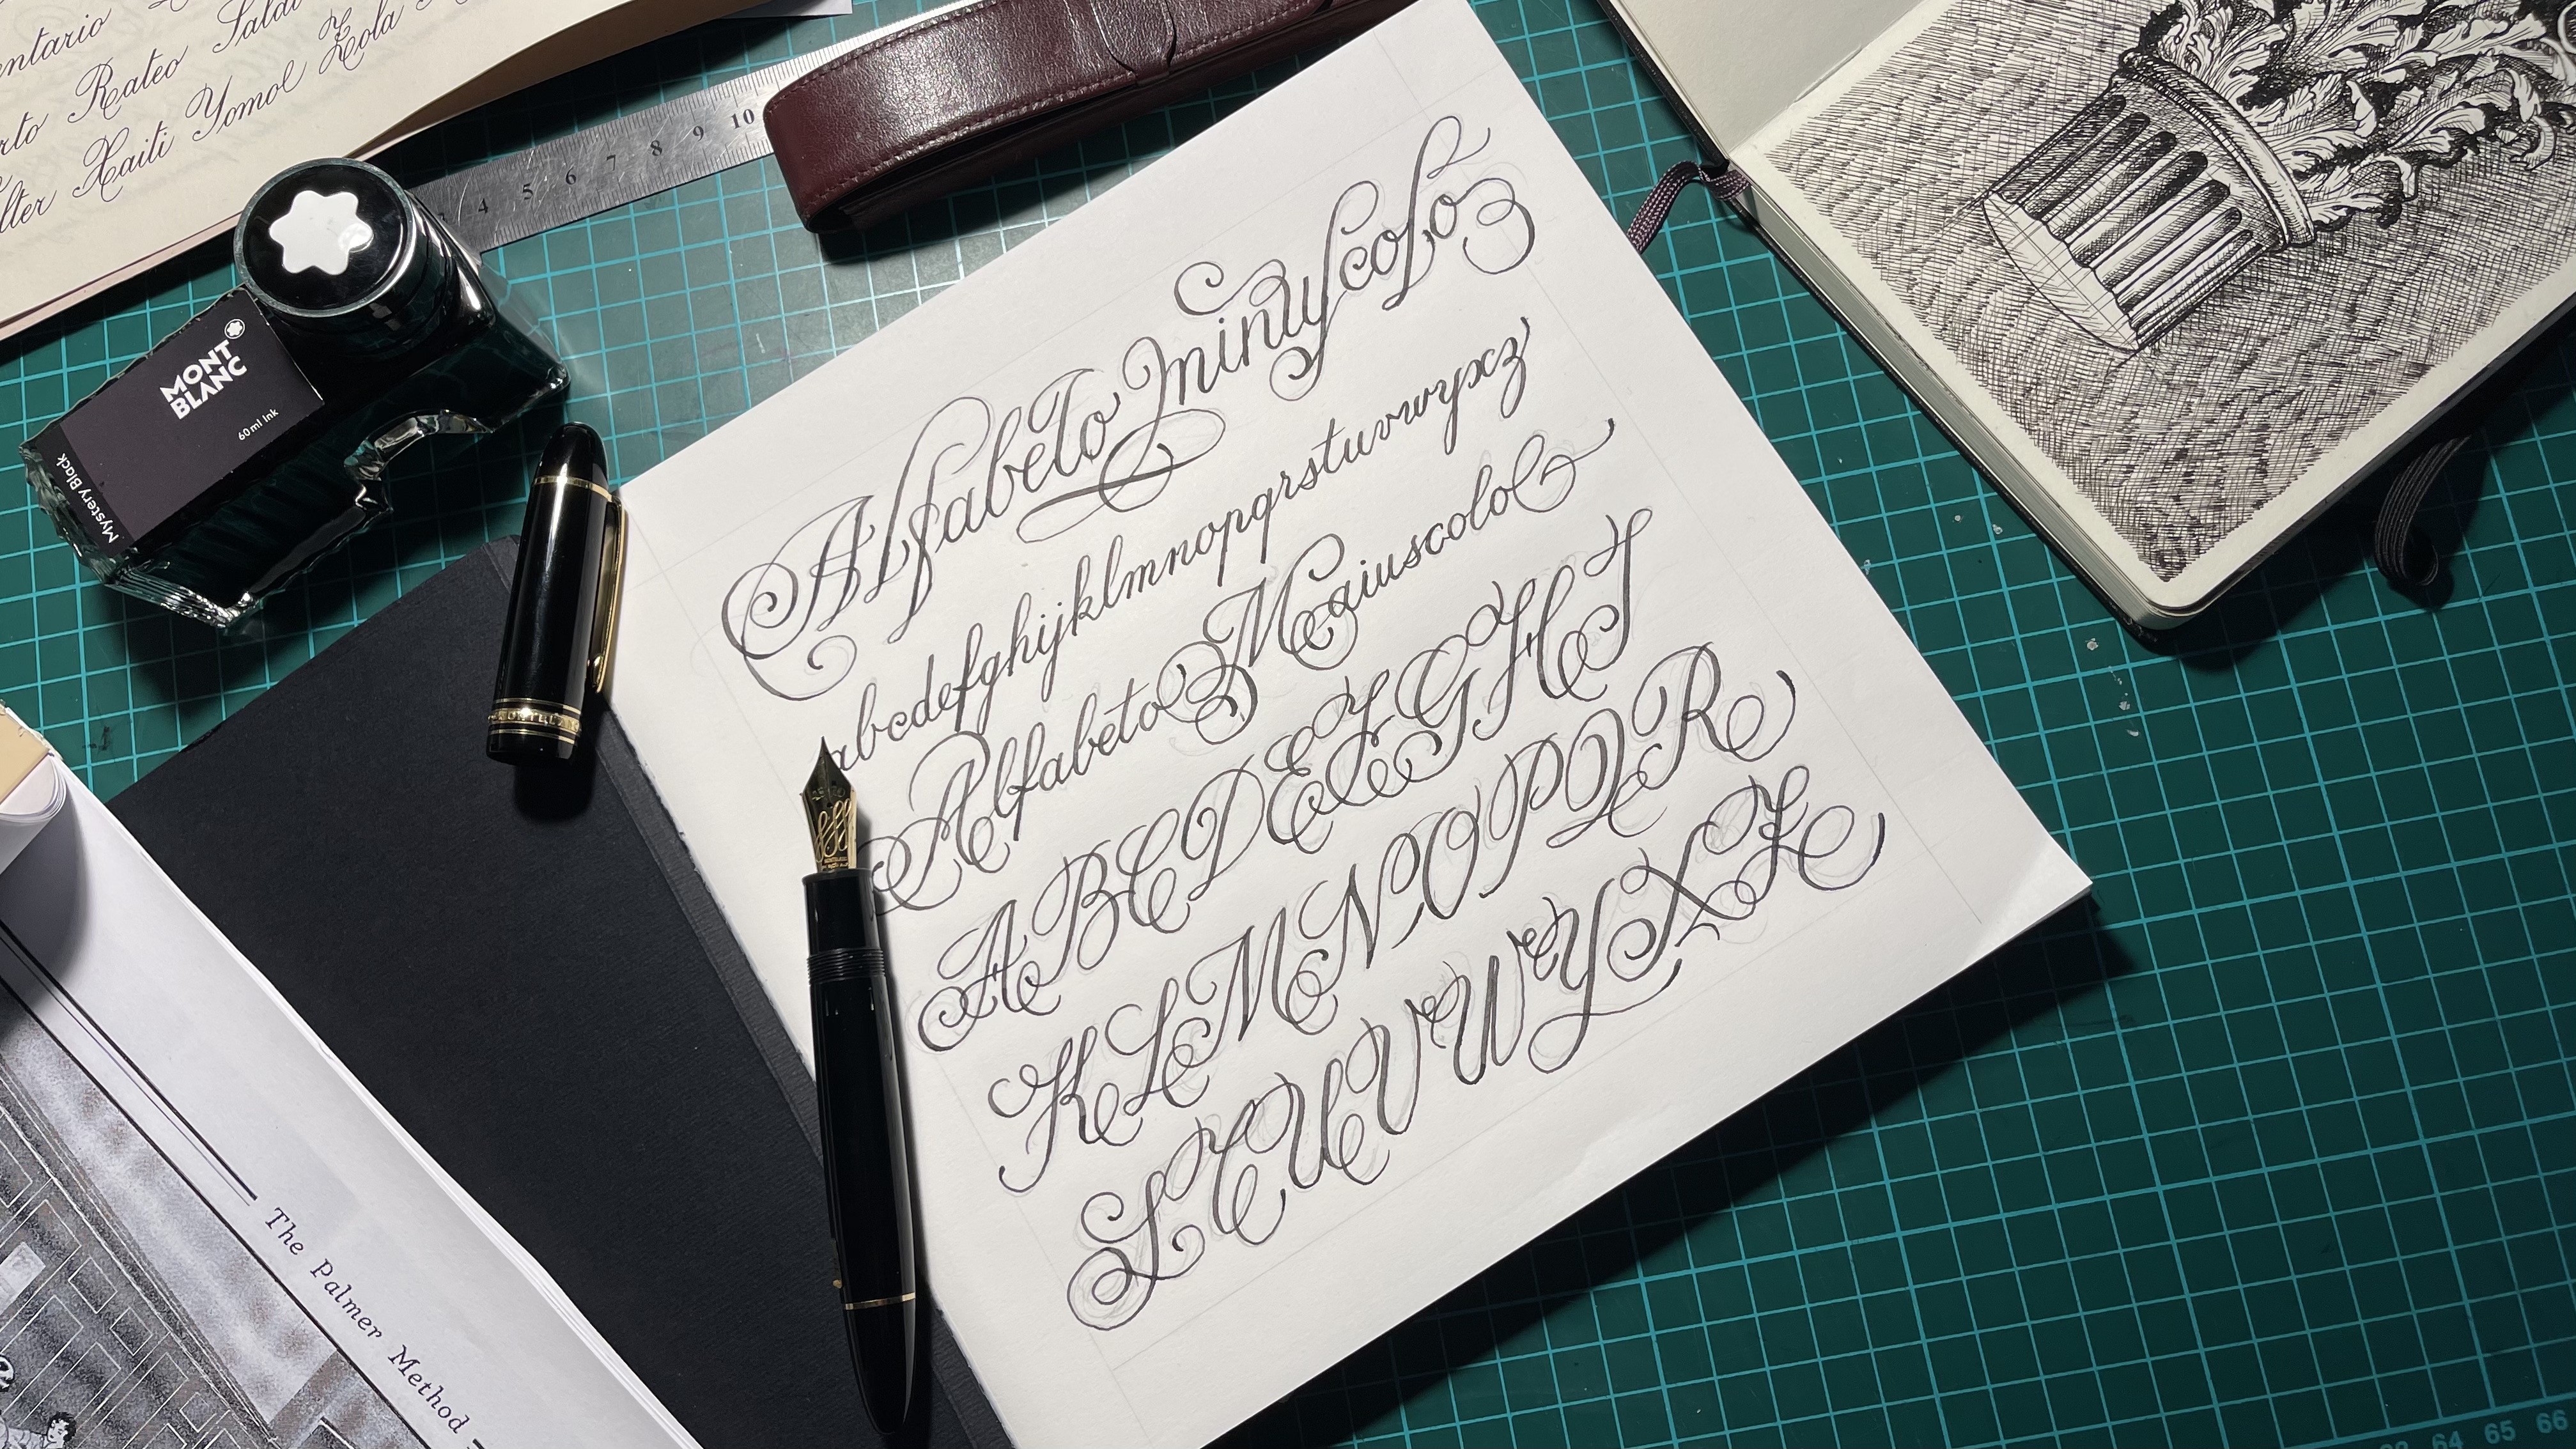 entario
rto Rateo
lter Xaiti Yomol Zola
4 5 6 7 8 9 10
MONT
BLANC
60 ml Ink
Mystery Black
Alfabeto minuscolo
abcdefghijklmnopqrstuvwyxz
Alfabeto Maiuscolo
ABCDEFGHI
KLMNOPQR
STUVWYXZ
The Palmer Method
64 65 66